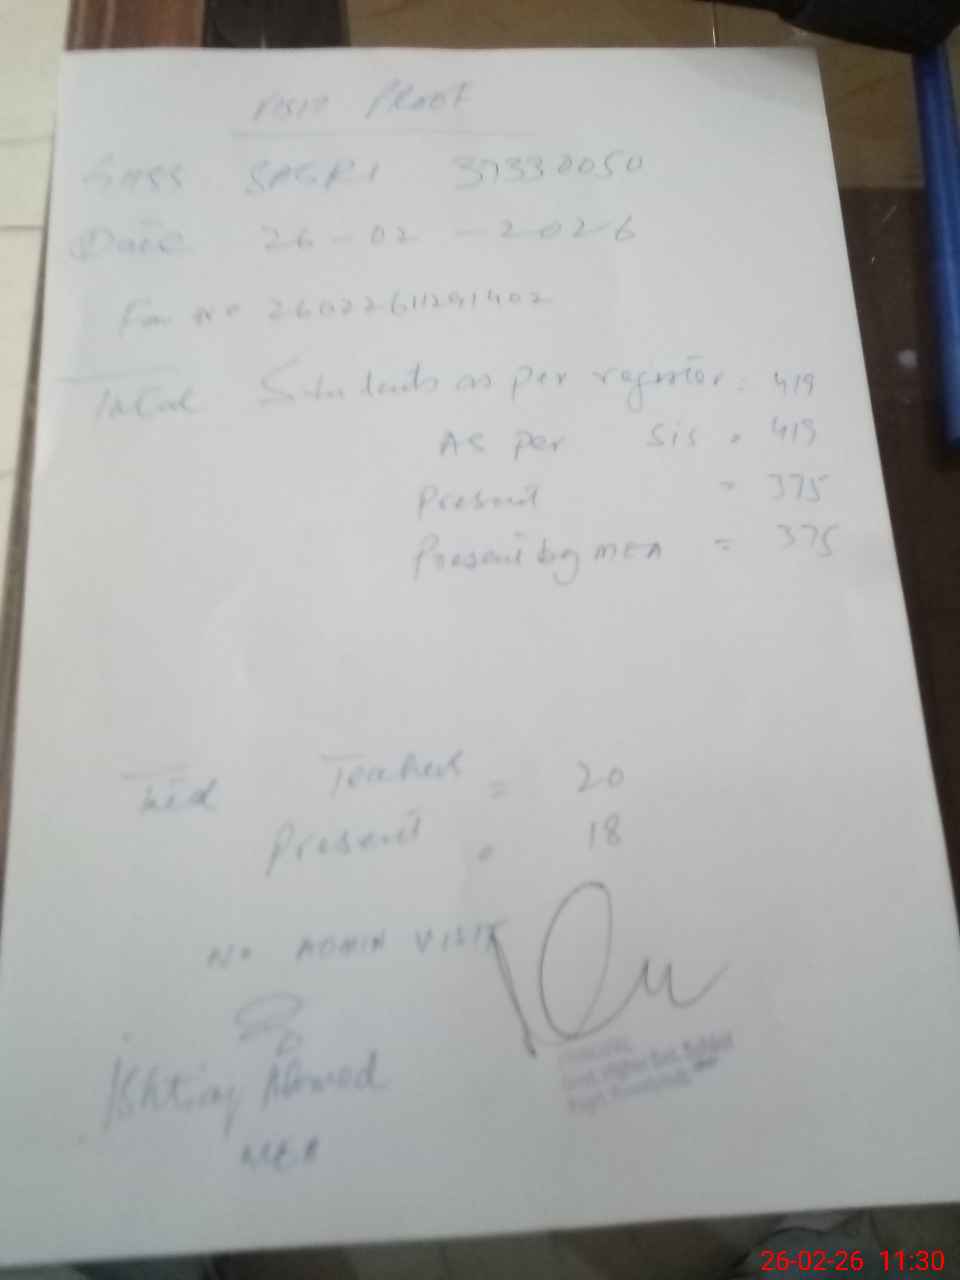 VISIT PROOF
GHSS SAGRI 37330050
Date 26-02-2026
Form No 26022611291402
Total Students as per register = 419
As per Sis = 419
Present = 375
Present by MEA = 375
Total Teachers = 20
Present = 18
No ADMIN VISIT
Ishtiaq Ahmed
MEA
26-02-26 11:30